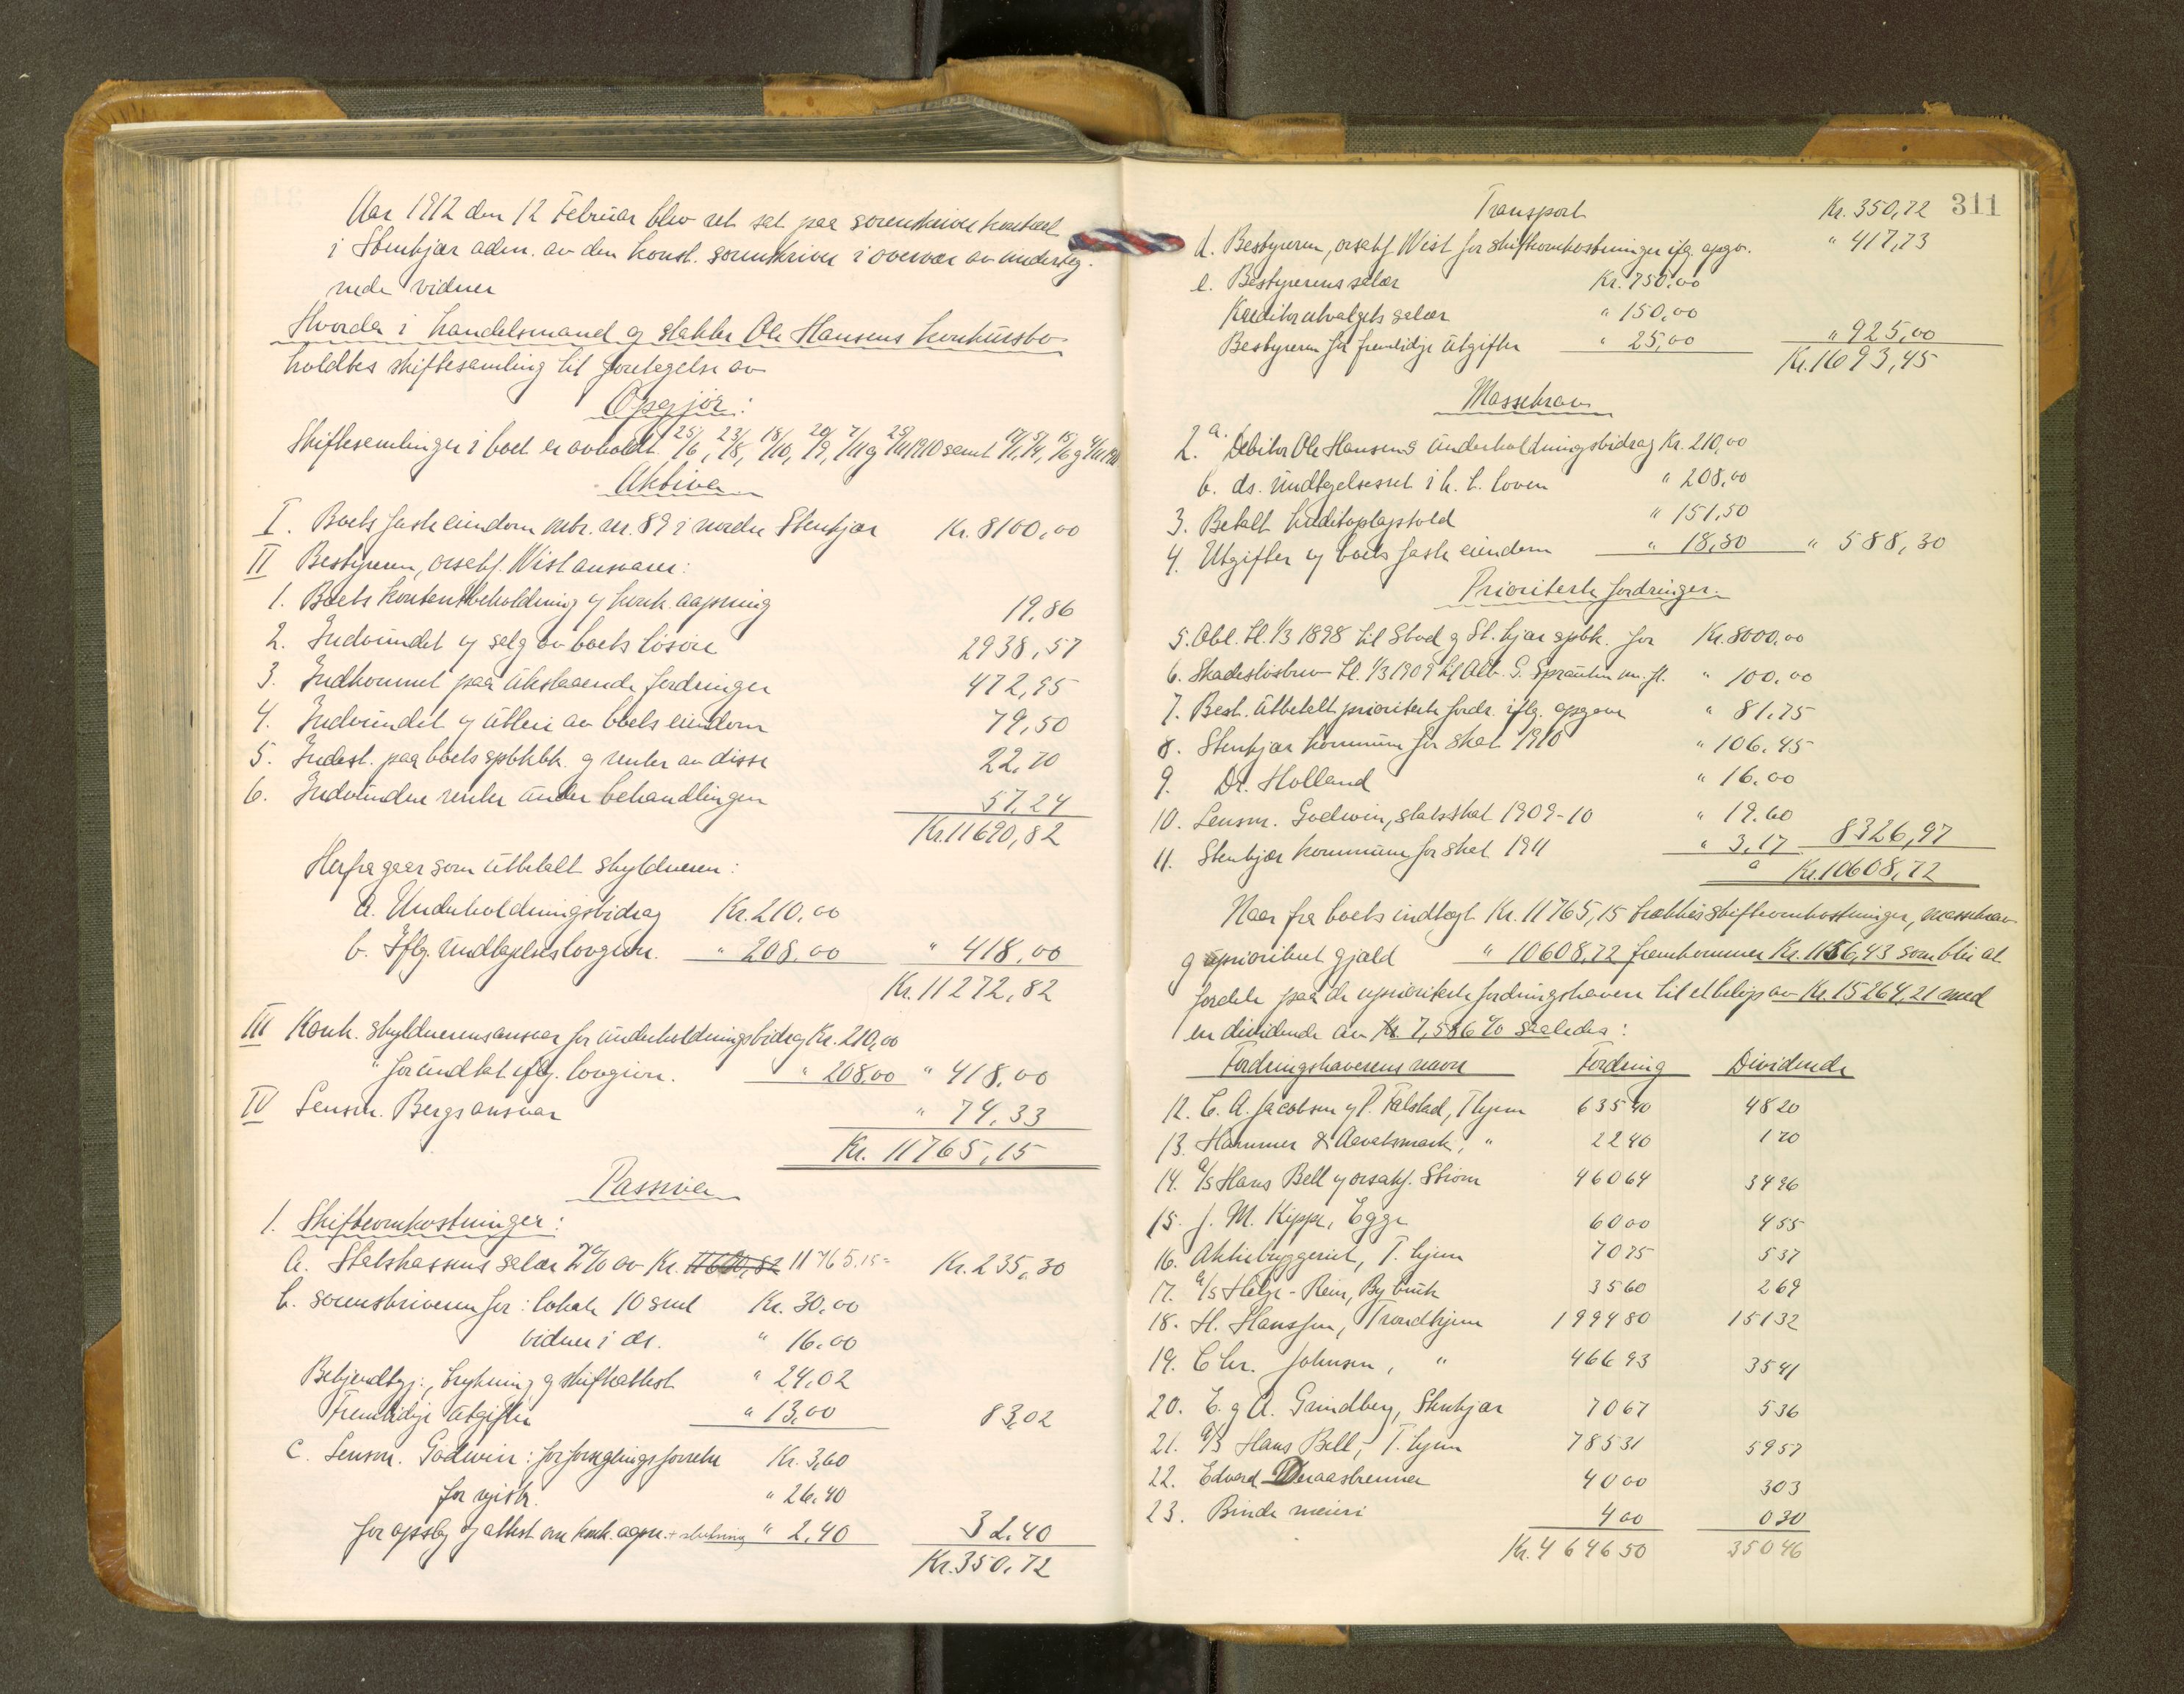 Aar 1912 den 12 Februar blev ret sat paa sorenskriverkontoret
i Stenkjær adm. av den konst. sorenskriver i overvær av underteg-
nede vidner
Hvorda i handelsmand og slakter Ole Hansens konkursbo
holdtes skiftesamling til foretagelse av
Opgjør:
Skiftesamlinger i boet er avholdt 25/6, 23/8, 18/10, 20/9, 7/11 og 25/11 1910 samt
Aktiva
I. Boets faste eiendom mtr. nr. 89 i nordre Stenkjær Kr. 8100,00
II Bestyreren, orsakf. Wist ansvarer:
1. Boets kontantbeholdning v/ konk. aapning 19,86
2. Indvundet v/ salg av boets løsøre 2938,57
3. Indkommet paa utestaaende fordringer 472,95
4. Indvundet v/ utleie av boets eiendom 79,50
5. Indest. paa boets spbkbk. og renter av disse 22,70
6. Indvundne renter under behandlingen 57,24
Kr. 11690,82
Herfra gaar som utbetalt skyldneren:
a. Underholdningsbidrag Kr. 210,00
b. Iflg. undtagelseslovgivn. " 208.00 " 418,00
Kr. 11272,82
III Konk. skyldnerens ansvar for underholdningsbidrag Kr. 210,00
" for undtat iflg. lovgivn. " 208.00 " 418,00
IV Lensm. Bergs ansvar " 74,33
Kr. 11765,15
Passiva
1. Skifteomkostninger:
a. Statskassens salær 2% av Kr. 11690,82 11765.15 = Kr. 235,30
b. sorenskriveren for: lokale 10 saml Kr. 30,00
vidner i ds. " 16.00
Bekjendtgj., trykning og skifteattest " 24,02
Fremtidige utgifter " 13,00 83,02
c. Lensm. Godwin: for forseglingsforretn Kr. 3,60
for registr. " 26.40
for opslag og attest om konk. aapn. + slutning " 2,40 32.40
Kr. 350,72
311
Transport Kr. 350,72
d. Bestyreren, orsakf Wist for skifteomkostninger iflg. opgv. " 417,73
e. Bestyrerens salær Kr. 750,00
Kreditorutvalgets salær " 150,00
Bestyreren for fremtidige utgifter " 25,00 " 925,00
Kr. 1693,45
Massekrav
2. a. Debitor Ole Hansens underholdningsbidrag Kr. 210,00
b. ds. undtagelsesret i h. t. loven " 208,00
3. Betalt kreditoplagstold " 151,50
4. Utgifter v/ boets faste eiendom " 18,80 " 588,30
Prioriterte fordringer.
5. Obl. tl. 1/3 1898 til Stod og St.kjær spbk. for Kr. 8000,00
6. Skadesløsbrev tl. 1/3 1909 til Alb. S. Sprauten m. fl. " 100.00
7. Best. utbetalt prioriterte fordr. iflg. opgave " 81.75
8. Stenkjær kommune for skat 1910 " 106.45
9. Dr. Holland " 16.00
10. Lensm. Godwin, statsskat 1909-10 " 19.60
11. Stenkjær kommune for skat 1911 " 3,17 8326,97
" Kr. 10608,72
Naar fra boets indtægt Kr. 11765,15 trækkes skifteomkostninger, massekrav
og prioritert gjæld " 10608,72 fremkommer Kr. 1156,43 som blir at
fordele paa de uprioriterte fordringshavere til et beløp av Kr. 15264,21 med
en dividende av Kr 7,586% saaledes:
Fordringshaverens navn Fordring Dividende
12. C. A. Jacobsen v/ P. Falstad, Thjem 635 40 48 20
13. Hammer & Aavatsmark, " 22 40 1 70
14. A/S Hans Bell v/ orsakf. Strøm 460 64 34 96
15. J. M. Kippe, Egge 60 00 4 55
16. Aktiebryggeriet, T.hjem 70 75 5 37
17. A/S Helge-Rein, By bruk 35 60 2 69
18. H. Hanssen, Trondhjem 1994 80 151 32
19. Chr. Johnsen, " 466 93 35 41
20. E. og A. Grindberg, Stenkjær 70 67 5 36
21. A/S Hans Bell, T.hjem 785 31 59 57
22. Edvard 40 00 3 03
23. Binde meieri 4 00 0 30
Kr. 4646 50 350 46